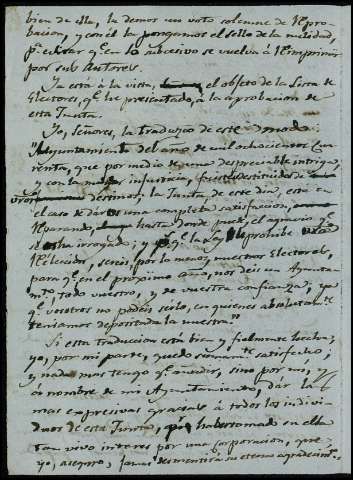 bien de ella, la demos un voto solemne de Repro-
bacion, y con él la pongamos el sello de la nulidad,
pª evitar qᵉ en lo subcesivo se vuelva á Reimprimir
por sus Autores.
Ya está á la vista, el objeto de la Lista de
Electores, qᵉ he presentado, á la aprobacion de
esta Junta.
Yo, Señores, la traduzco de este modo:
"Ayuntamiento del año de mil ochocientos Cua
renta, que por medio de una despreciable intriga,
y con la mayor injusticia, fuisteis destituidos de
vrõs destinos, la Junta de este dia, está en
el caso de daros una completa satisfaccion,
Reparando, hasta donde puede, el agravio qᵉ
se os ha irrogado; y pr qᵉ la Ley prohibe
Reeleccion, sereis, por lo menos, nuestros Electores,
para qᵉ en el procsimo año, nos deis un Ayunta-
mᵗº todo vuestro, y de vuestra confianza; ya
qᵉ vosotros no podeis serlo, en quienes absolutamᵗᵉ
teniamos depositada la nuestra"
Si esta traduccion está bien y fielmente hecha;
yo, por mi parte, quedo sumamᵗᵉ satisfecho;
y nada mas tengo qᵉ añadir, sino por mi, y
á nombre de mi Ayuntamiento, dar las
mas expresivas gracias á todos los indivi-
duos de esta Junta, por haber tomado en ella
tan vivo interes por una Corporacion, que
yo, aseguro, jamas desmentirá su eterno agradecimᵗº